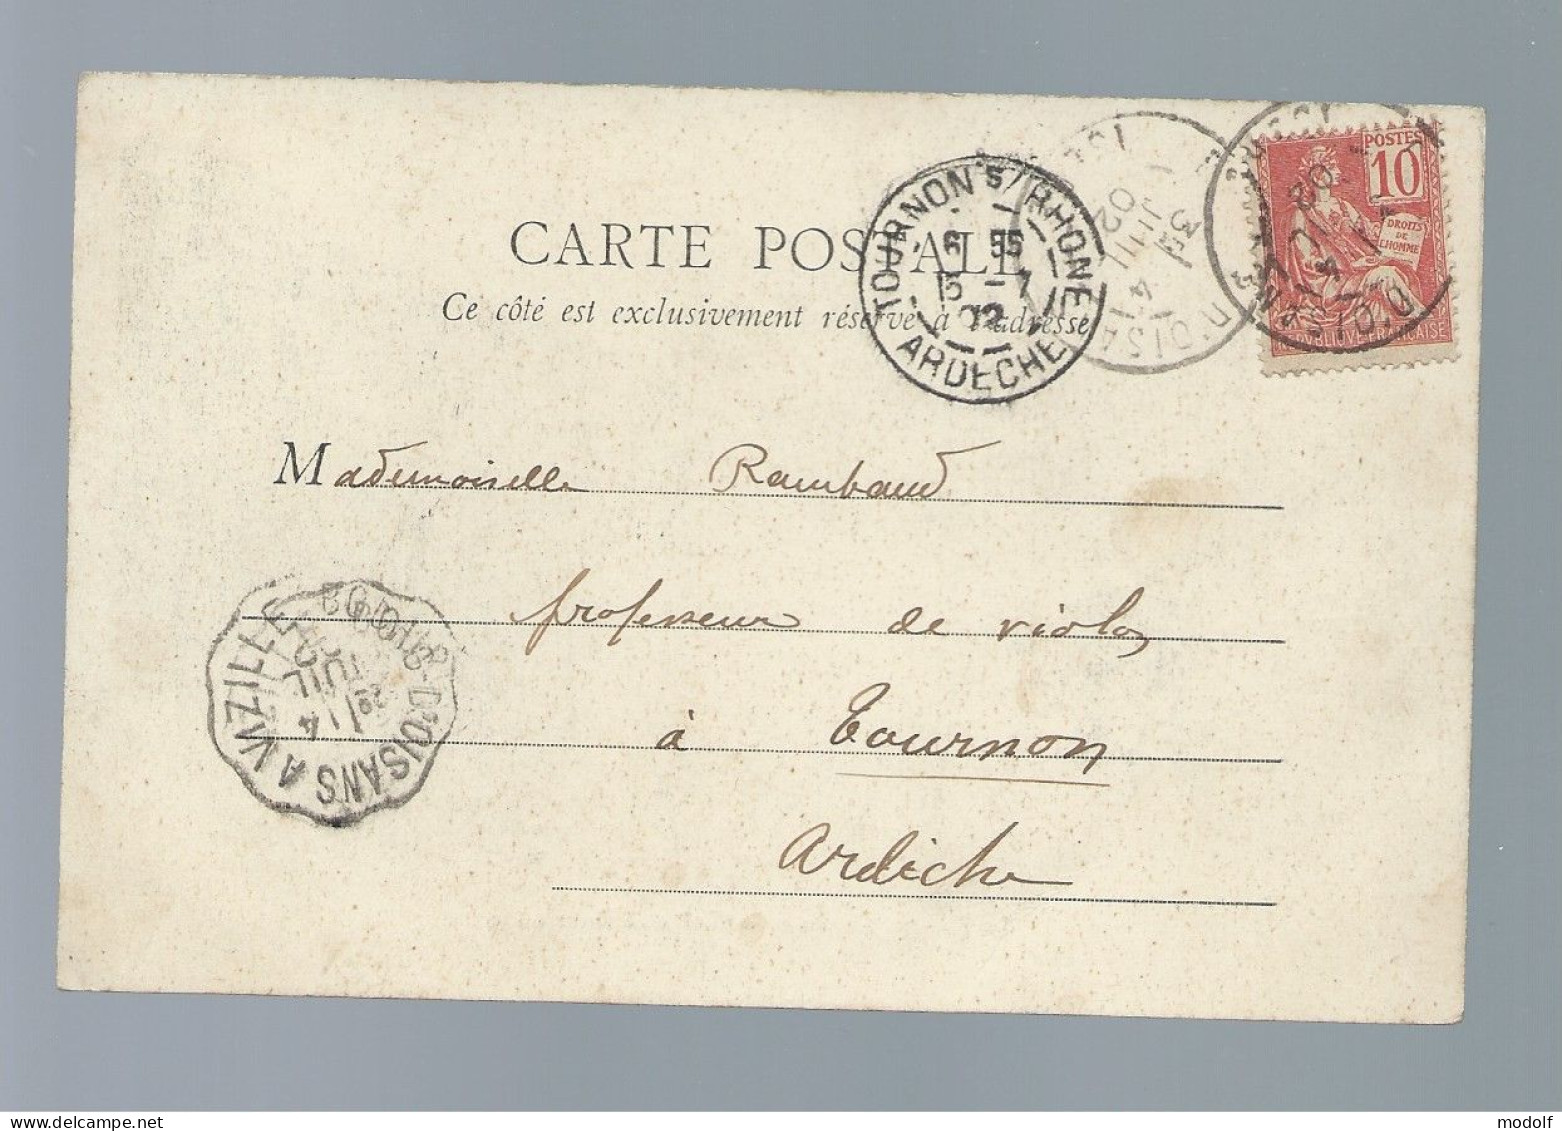 CARTE POSTALE
Ce côté est exclusivement réservé à l'adresse
TOURNON S/ RHONE
6 55
5 -7
02
ARDECHE
POSTES
10
DROITS
DE
L'HOMME
REPUBLIQUE FRANÇAISE
3E
4
JUIL
02
D'OISANS
Mademoiselle Rambaud
professeur de violon
à Tournon
Ardèche
BOURG-D'OISANS A VIZILLE
2º
4
JUIL
02
modolf